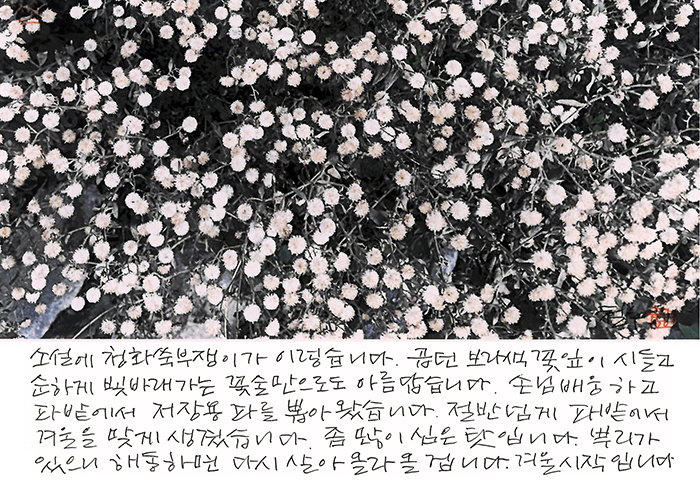 소설에 청화쑥부쟁이가 이렇습니다. 곱던 보라색 꽃잎이 시들고
순하게 빛바래가는 꽃술만으로도 아름답습니다. 손님배웅하고
파밭에서 저장용 파를 뽑아왔습니다. 절반넘게 파밭에서
겨울을 맞게 생겼습니다. 좀 많이 심은 탓입니다. 뿌리가
있으니 해동하면 다시 살아 올라올 겁니다. 겨울시작입니다